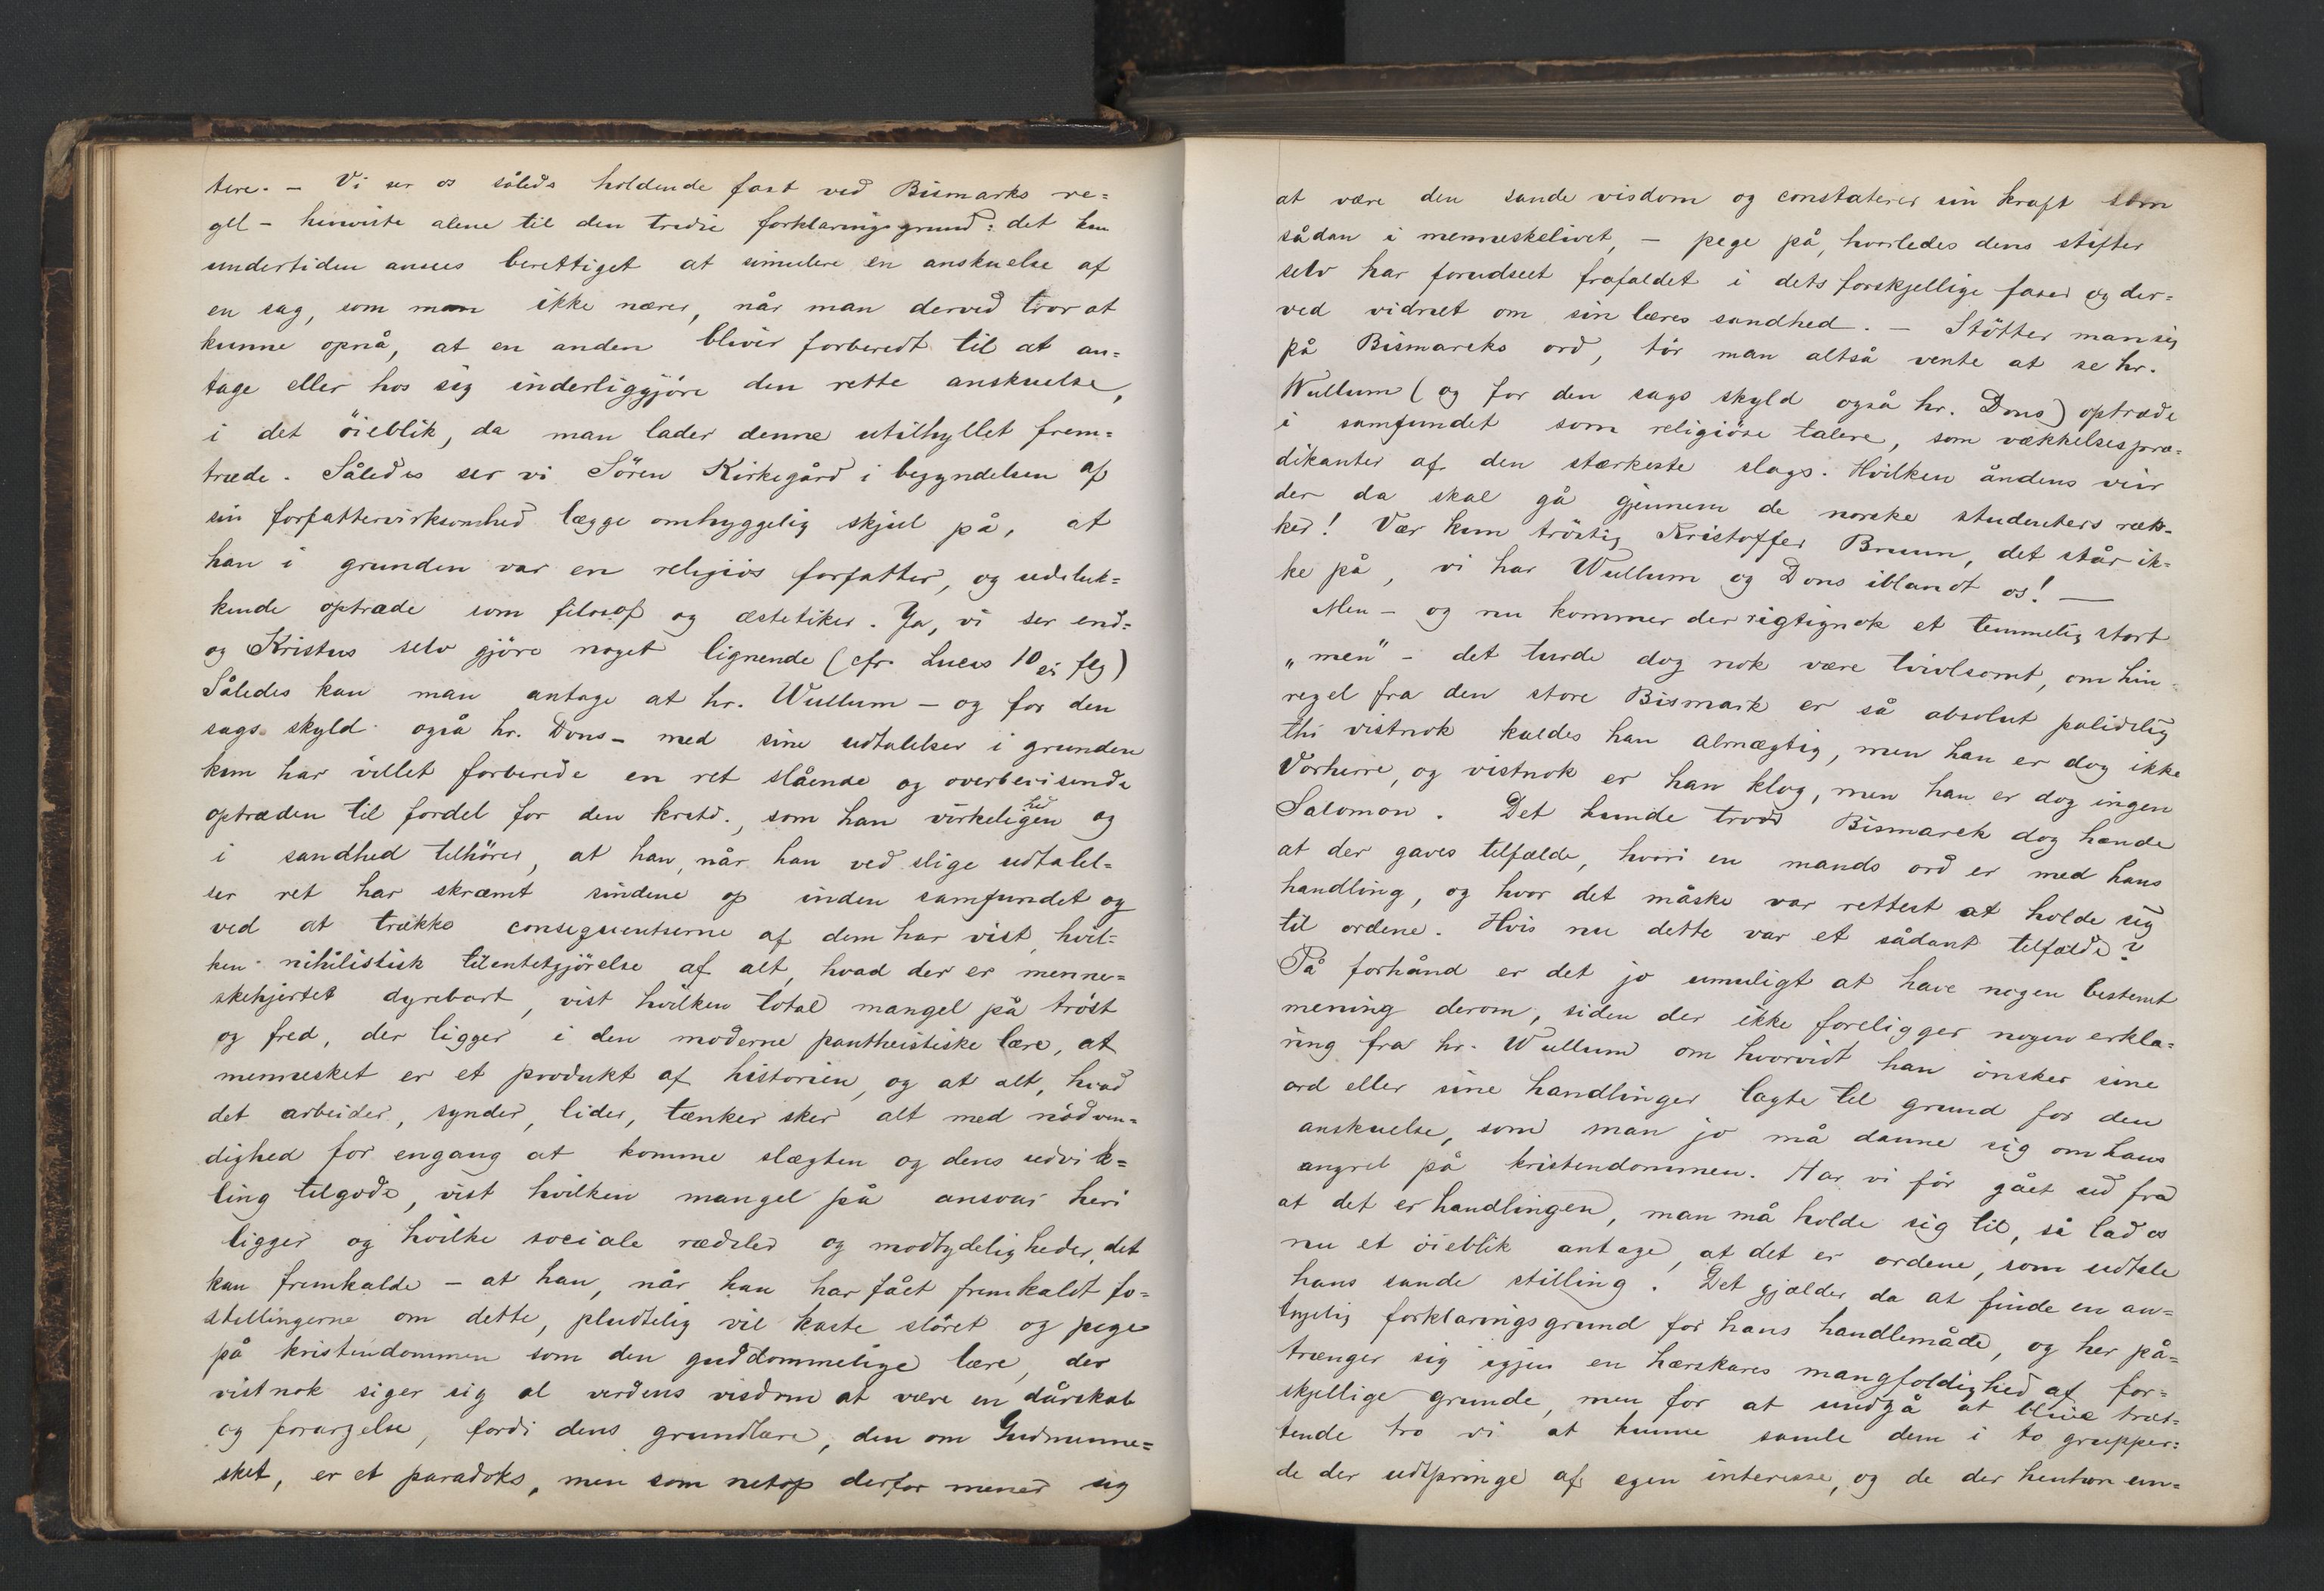 tere. – Vi ser os således holdende fast ved Bismarks re=
gel – henviste alene til den tredie forklaringsgrund: det kan
undertiden ansees berettiget at simulere en anskuelse af
en sag, som man ikke nærer, når man derved tror at
kunne opnå, at en anden bliver forberedt til at an=
tage eller hos sig inderliggjöre den rette anskuelse,
i det öieblik, da man lader denne utilhyllet frem=
træde. Således ser vi Sören Kirkegård i begyndelsen af
sin forfattervirksomhed lægge omhyggelig skjul på, at
han i grunden var en religiös forfatter, og udeluk=
kende optræde som filosof og æstetiker. Ja, vi ser end=
og Kristus selv gjöre noget lignende (cfr. Lucas 10 flg)
Således kan man antage at hr. Wullum – og for den
sags skyld også hr. Dons – med sine udtalelser i grunden
kun har villet forberede en ret slående og overbevisende
optræden til fordel for den kristd., som han virkeligen og
i sandhed tilhörer, at han, når han ved slige udtalel=
ser ret har skræmt sindene op inden samfundet og
ved at trække consequentserne af dem har vist, hvil=
ken nihilistisk tilintetgjörelse af alt, hvad der er menne=
skehjertet dyrebart, vist hvilken total mangel på tröst
og fred, der ligger i den moderne pantheistiske lære, at
mennesket er et produkt af historien, og at alt, hvad
det arbeider, synder, lider, tænker sker alt med nödven=
dighed for engang at komme slægten og dens udvik=
ling tilgode, vist hvilken mangel på ansvar heri
ligger og hvilke sociale rædsler og modbydeligheder, det
kan fremkalde – at han, når han har fået fremkaldt fo=
stillingerne om dette, pludselig vil kaste slöret og pege
på kristendommen som den guddommelige lære, der
vistnok siger sig al verdens visdom at være en dårskab
og forargelse, fordi dens grundlære, den om Gudmenne=
sket, er et paradoks, men som netop derfor mener sig
at være den sande visdom og constaterer sin kraft som
sådan i menneskelivet, – pege på, hvorledes dens stifter
selv har forudseet frafaldet i dets forskjellige faser og der=
ved vidnet om sin læres sandhed. – Stötter man sig
på Bismarcks ord, tör man altså vente at se hr.
Wullum (og for den sags skyld også hr. Dons) optræde
i samfundet som religiöse talere, som vækkelsespræ=
dikanter af den stærkeste slags. Hvilken åndens veir
der da skal gå gjennem de norske studenters ræk=
ker! Vær kun tröstig Kristoffer Bruun, det står ik=
ke på, vi har Wullum og Dons iblandt os! –
Men – og nu kommer der rigtignok et temmelig stort
„men“ – det turde dog nok være tvivlsomt, om hin
regel fra den store Bismark er så absolut pålidelig
thi vistnok kaldes han almægtig, men han er dog ikke
Vorherre, og vistnok er han klog, men han er dog ingen
Salomon. Det kunde trods Bismarck dog hænde
at der gaves tilfælde, hvori en mands ord er med hans
handling, og hvor det måske var rettest at holde sig
til ordene. Hvis nu dette var et sådant tilfælde?
På forhånd er det jo umuligt at have nogen bestemt
mening derom, siden der ikke foreligger nogen erklæ=
ring fra hr. Wullum om hvorvidt han önsker sine
ord eller sine handlinger lagte til grund for den
anskuelse, som man jo må danne sig om hans
angreb på kristendommen. Har vi för gået ud fra
at det er handlingen, man må holde sig til, så lad os
nu et öieblik antage, at det er ordene, som udtale
hans sande stilling. Det gjælder da at finde en an=
tagelig forklaringsgrund for hans handlemåde, og her på=
trænger sig igjen en hærskares mangfoldighed af for=
skjellige grunde, men for at undgå at blive træt=
tende tro vi at kunne samle dem i to grupper:
de der udspringe af egen interesse, og de der hentvr un=